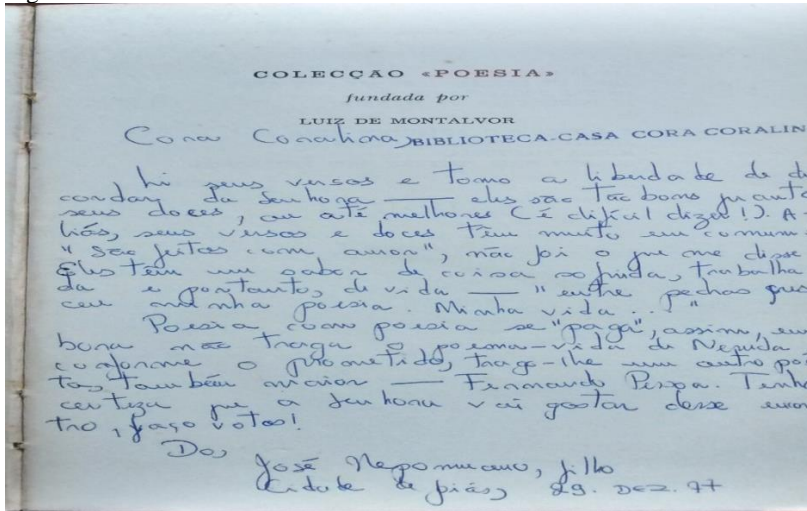 COLECÇÃO «POESIA»
fundada por
LUIZ DE MONTALVOR
Cora Coralina, BIBLIOTECA-CASA CORA CORALIN
Li seus versos e tomo a liberdade de dis
cordar da senhora — eles são tão bons quanto
seus doces, ou até melhores (é difícil dizer!). A
liás, seus versos e doces têm muito em comum -
"são feitos com amor", não foi o que me disse
Eles têm um sabor de coisa sofrida, trabalha
da e portanto, de vida — "entre pedras cres
ceu minha poesia. Minha vida..."
Poesia com poesia se "paga", assim, em
bora não traga o poema-vida de Neruda
conforme o prometido, trago-lhe um outro poe
ta, também maior — Fernando Pessoa. Tenho
certeza que a senhora vai gostar desse encon
tro, faço votos!
Do,
José Nepomuceno, filho
Cidade de Goiás, 29. DEZ. 77